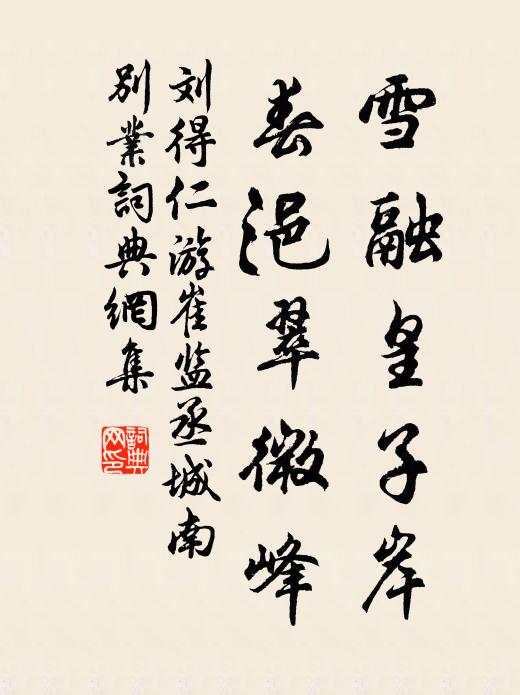 雪融皇子岸
春浥翠微峰
刘得仁游崔监丞城南
别業詞典網集
詞典网印